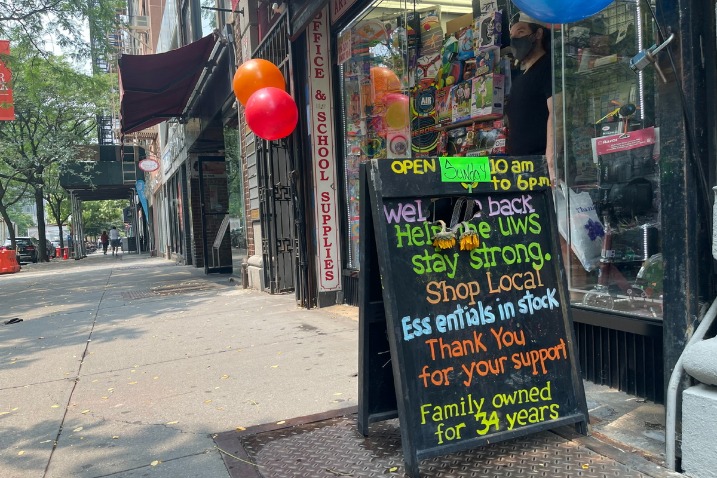 OFFICE & SCHOOL SUPPLIES
OPEN Sunday 10 am
to 6pm
Wel back
Help the UWS
stay strong.
Shop Local
Essentials in stock
Thank You
for your support
Family owned
for 34 years